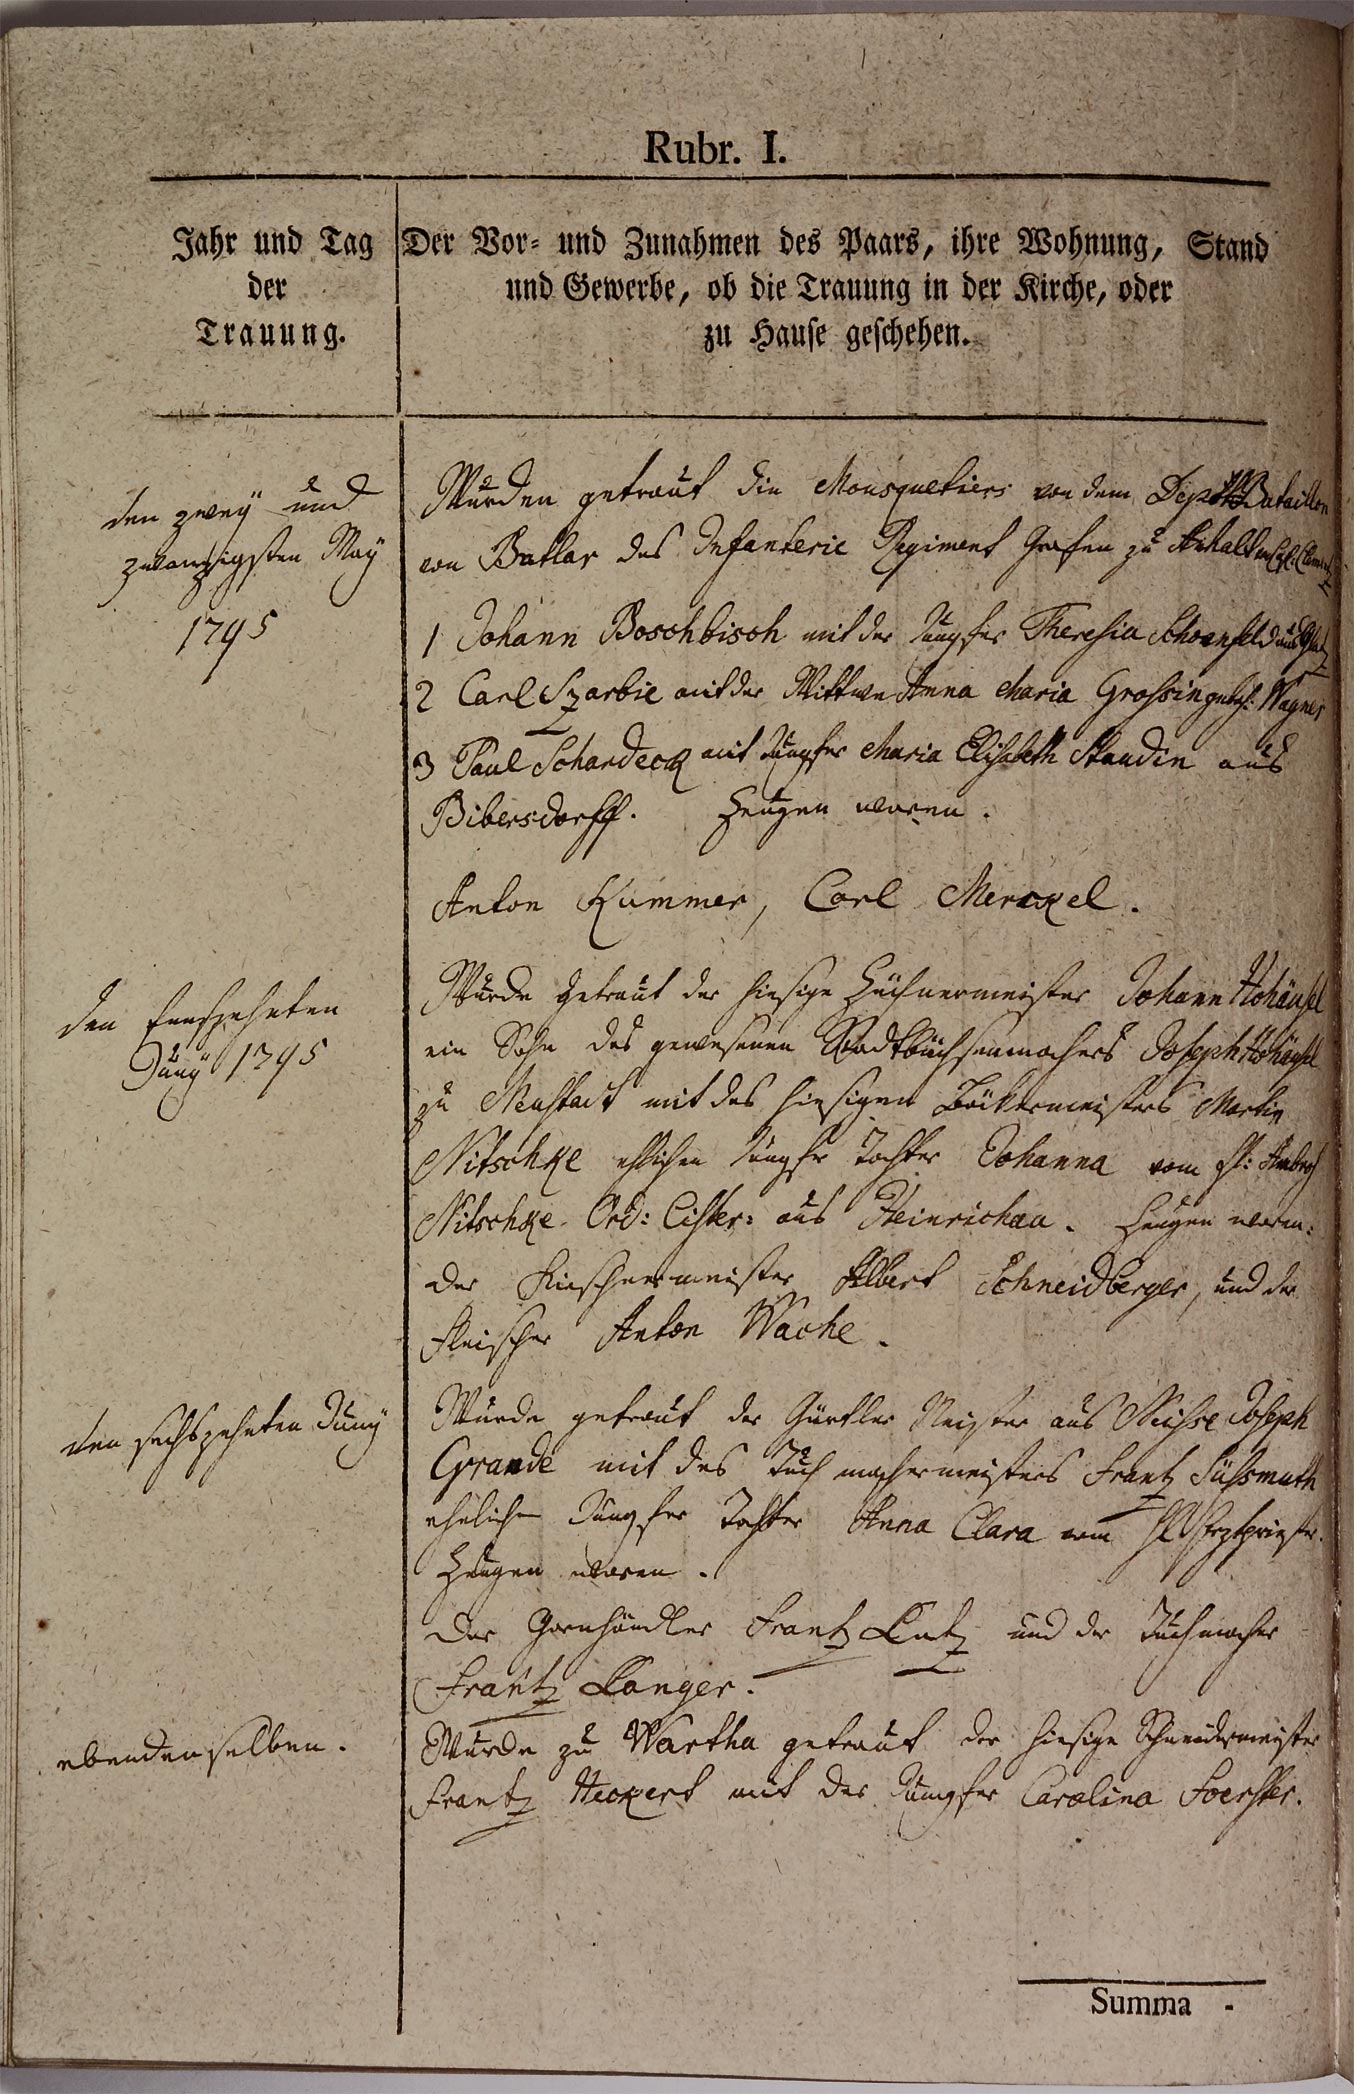 Rubr. I.
Jahr und Tag
der
Trauung.
Der Vor- und Zunahmen des Paars, ihre Wohnung, Stand
und Gewerbe, ob die Trauung in der Kirche, oder
zu Hause geschehen.
den zwey und
zwanzigsten May
1795
Wurden getraut die Mousquetiers von dem Bataillon
von Butlar des Infanterie Regiment Grafen zu Anhalt
1 Johann Boschbisch mit der Jungfer Theresia Schoenfeld aus Glatz
2 Carl Szarbie mit der Wittwe Anna Maria Grossin gebohr: Wagner
3 Paul Schardeck mit Jungfer Maria Elisabeth Staudin aus
Bibersdorff. Zeugen waren.
Anton Kummer, Carl Merckel.
den funfzehnten
Juny 1795
Wurde getraut der hiesige Züchnermeister Johann Hohäusel
ein Sohn des gewesenen Stadtbüchsenmachers Joseph Hohäusel
zu Neustadt mit des hiesigen Bäckermeisters Martin
Nitschke ehlichen Jungfr Tochter Johanna vom H: Ambros
Nitschke Ord: Cister: aus Heinrichau. Zeugen waren:
der Kirschnermeister Albert Schneidberger, und der
Fleischer Anton Wache.
den sechszehnten Juny
Wurde getraut der Gürtler Meister aus Neisse Joseph
Grande mit des Tuchmachermeisters Frantz Süssmuth
ehelichen Jungfer Tochter Anna Clara vom H Ertzpriester.
Zeugen waren.
Der Garnhändler Frantz Lutz und der Tuchmacher
Frantz Langer.
ebendenselben.
Wurde zu Wartha getraut der hiesige Schneidermeister
Frantz Heckert mit der Jungfer Carolina Foerster.
Summa -